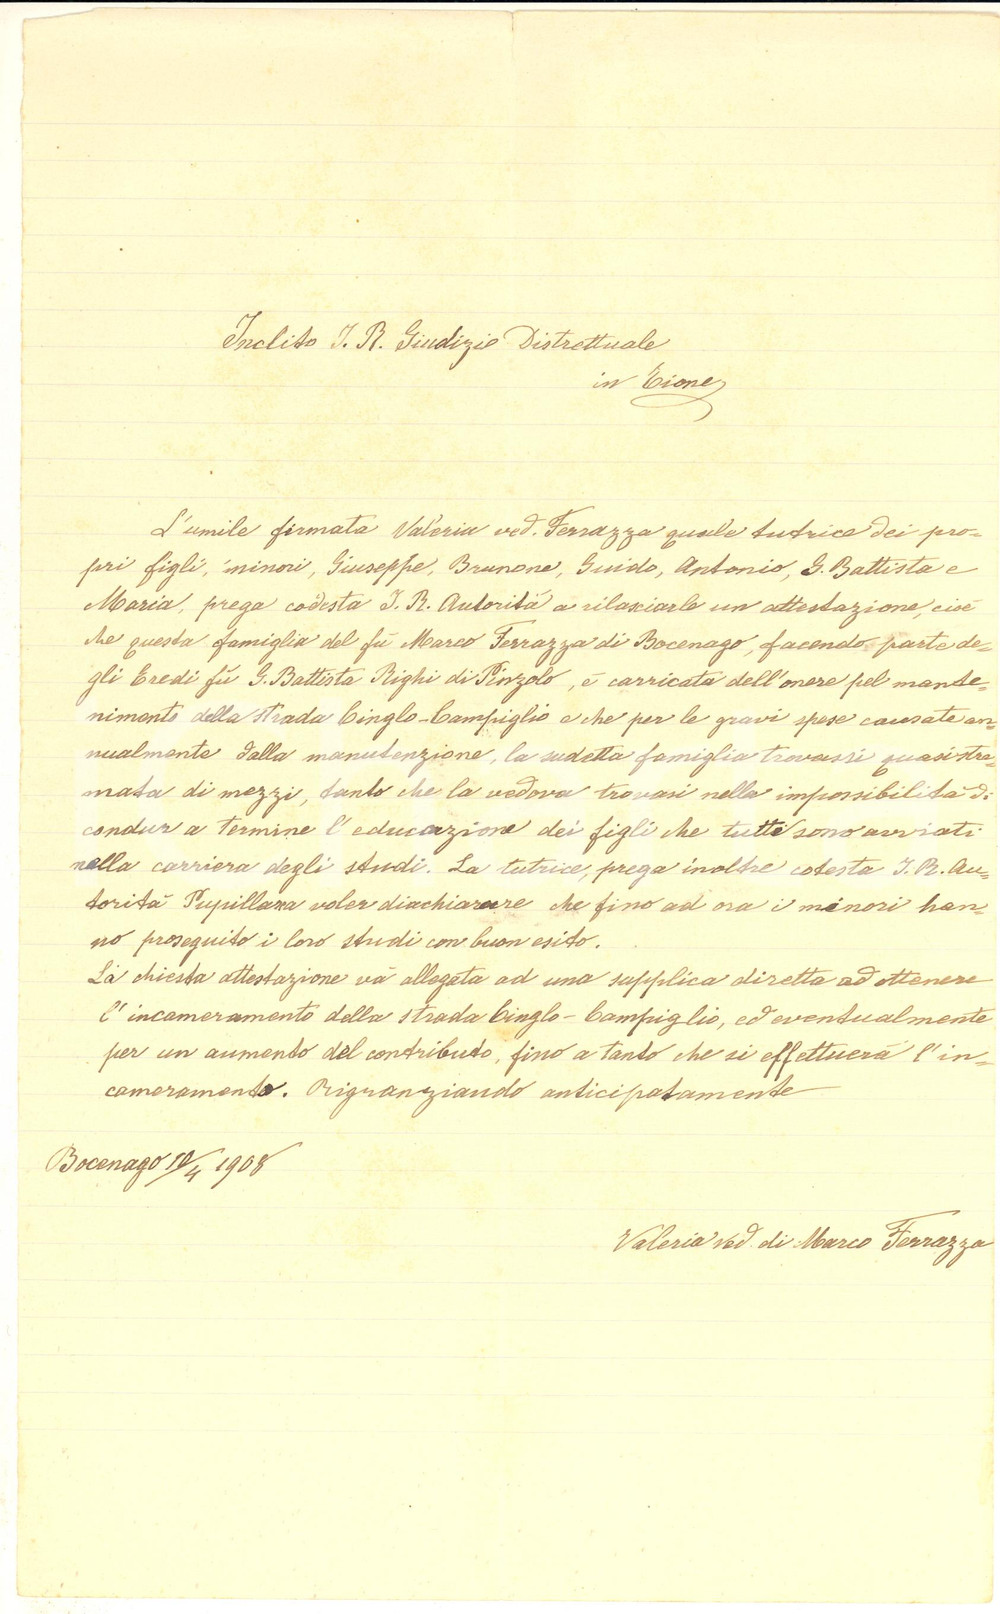 Inclito I. R. Giudizio Distrettuale
in Tione
L'umile firmata Valeria ved. Ferrazza quale tutrice dei pro=
pri figli, minori, Giuseppe, Brunone, Guido, Antonio, G. Battista e
Maria, prega codesta I. R. Autorità a rilasciarle un attestazione, cioè
che questa famiglia del fù Marco Ferrazza di Bocenago, facendo parte de=
gli Eredi fù G. Battista Righi di Pinzolo, è carricata dell'onere pel mante=
nimento della strada Ginglo-Campiglio e che per le gravi spese causate an=
nualmente dalla manutenzione, la sudetta famiglia trovassi quasi stre=
mata di mezzi, tanto che la vedova trovasi nella impossibilità di
condur a termine l'educazione dei figli che tutti sono avviati
nella carriera degli studi. La tutrice, prega inoltre cotesta I. R. Au=
torità Pupillara voler diachiarare che fino ad ora i minori han=
no proseguito i loro studi con buon esito.
La chiesta attestazione và allegata ad una supplica diretta ad ottenere
l'incameramento della strada Ginglo-Campiglio, ed eventualmente
per un aumento del contributo, fino a tanto che si effettuerà l'in=
cameramento. Rigranziando anticipatamente
Bocenago 10/4 1908
Valeria ved. di Marco Ferrazza